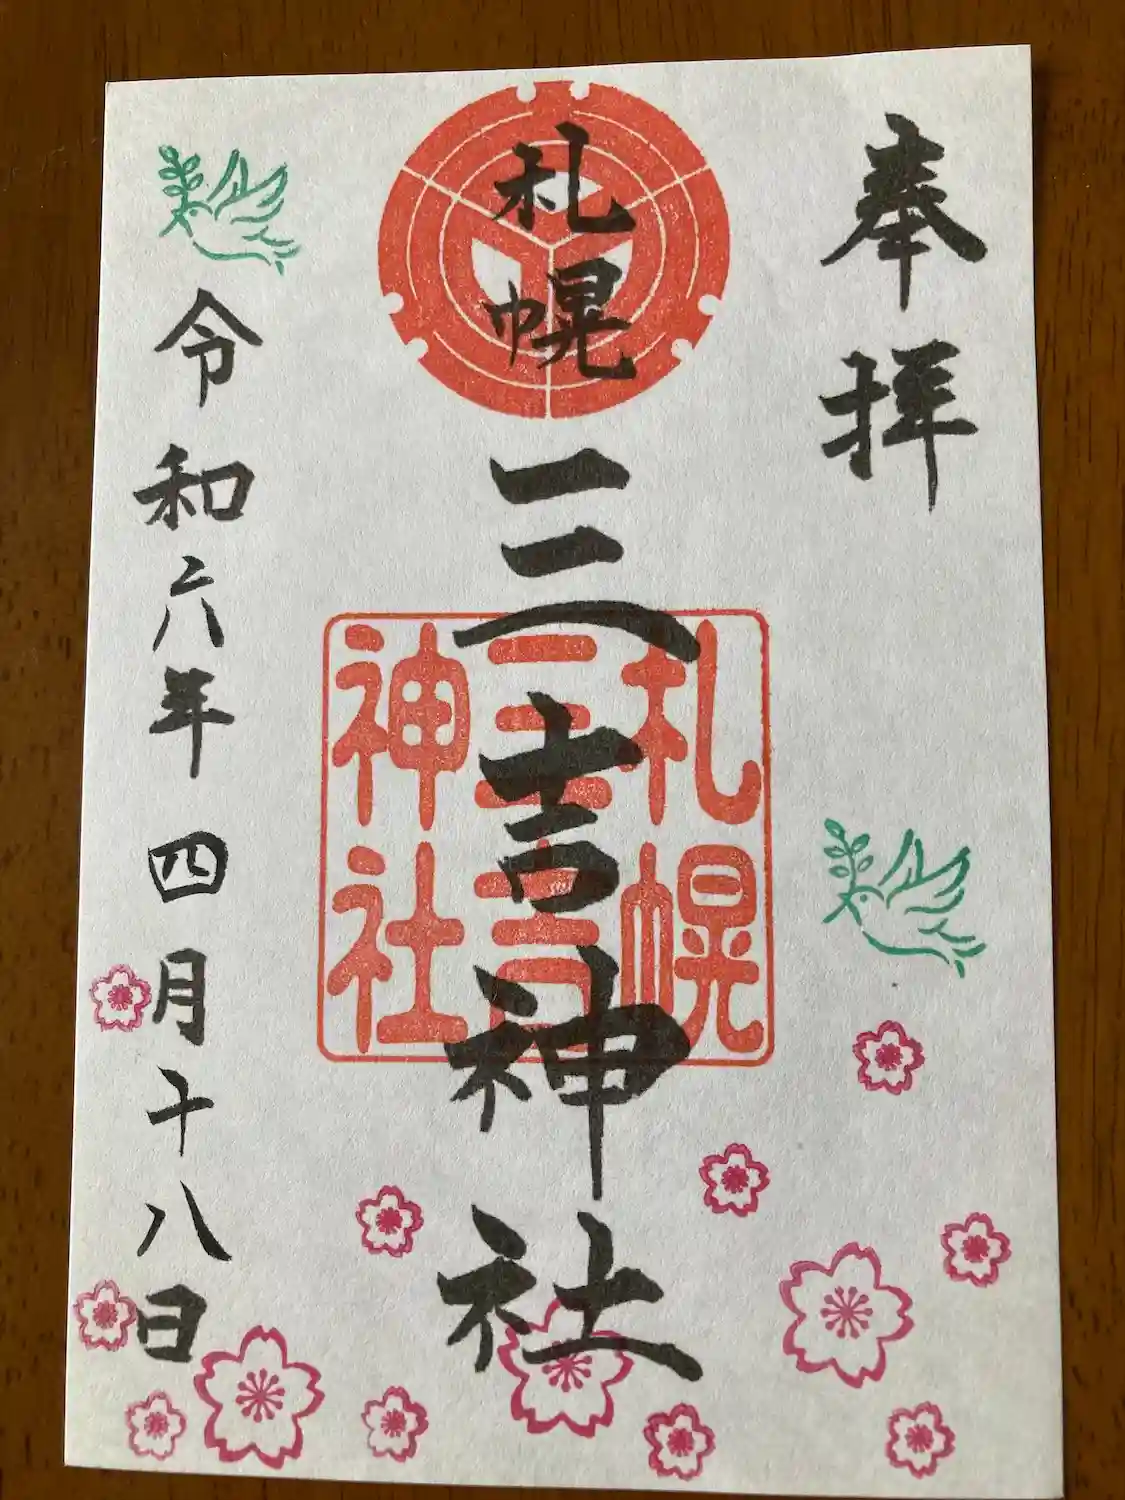 奉拝
札幌三吉神社
札幌
三吉
神社
令和六年四月十八日